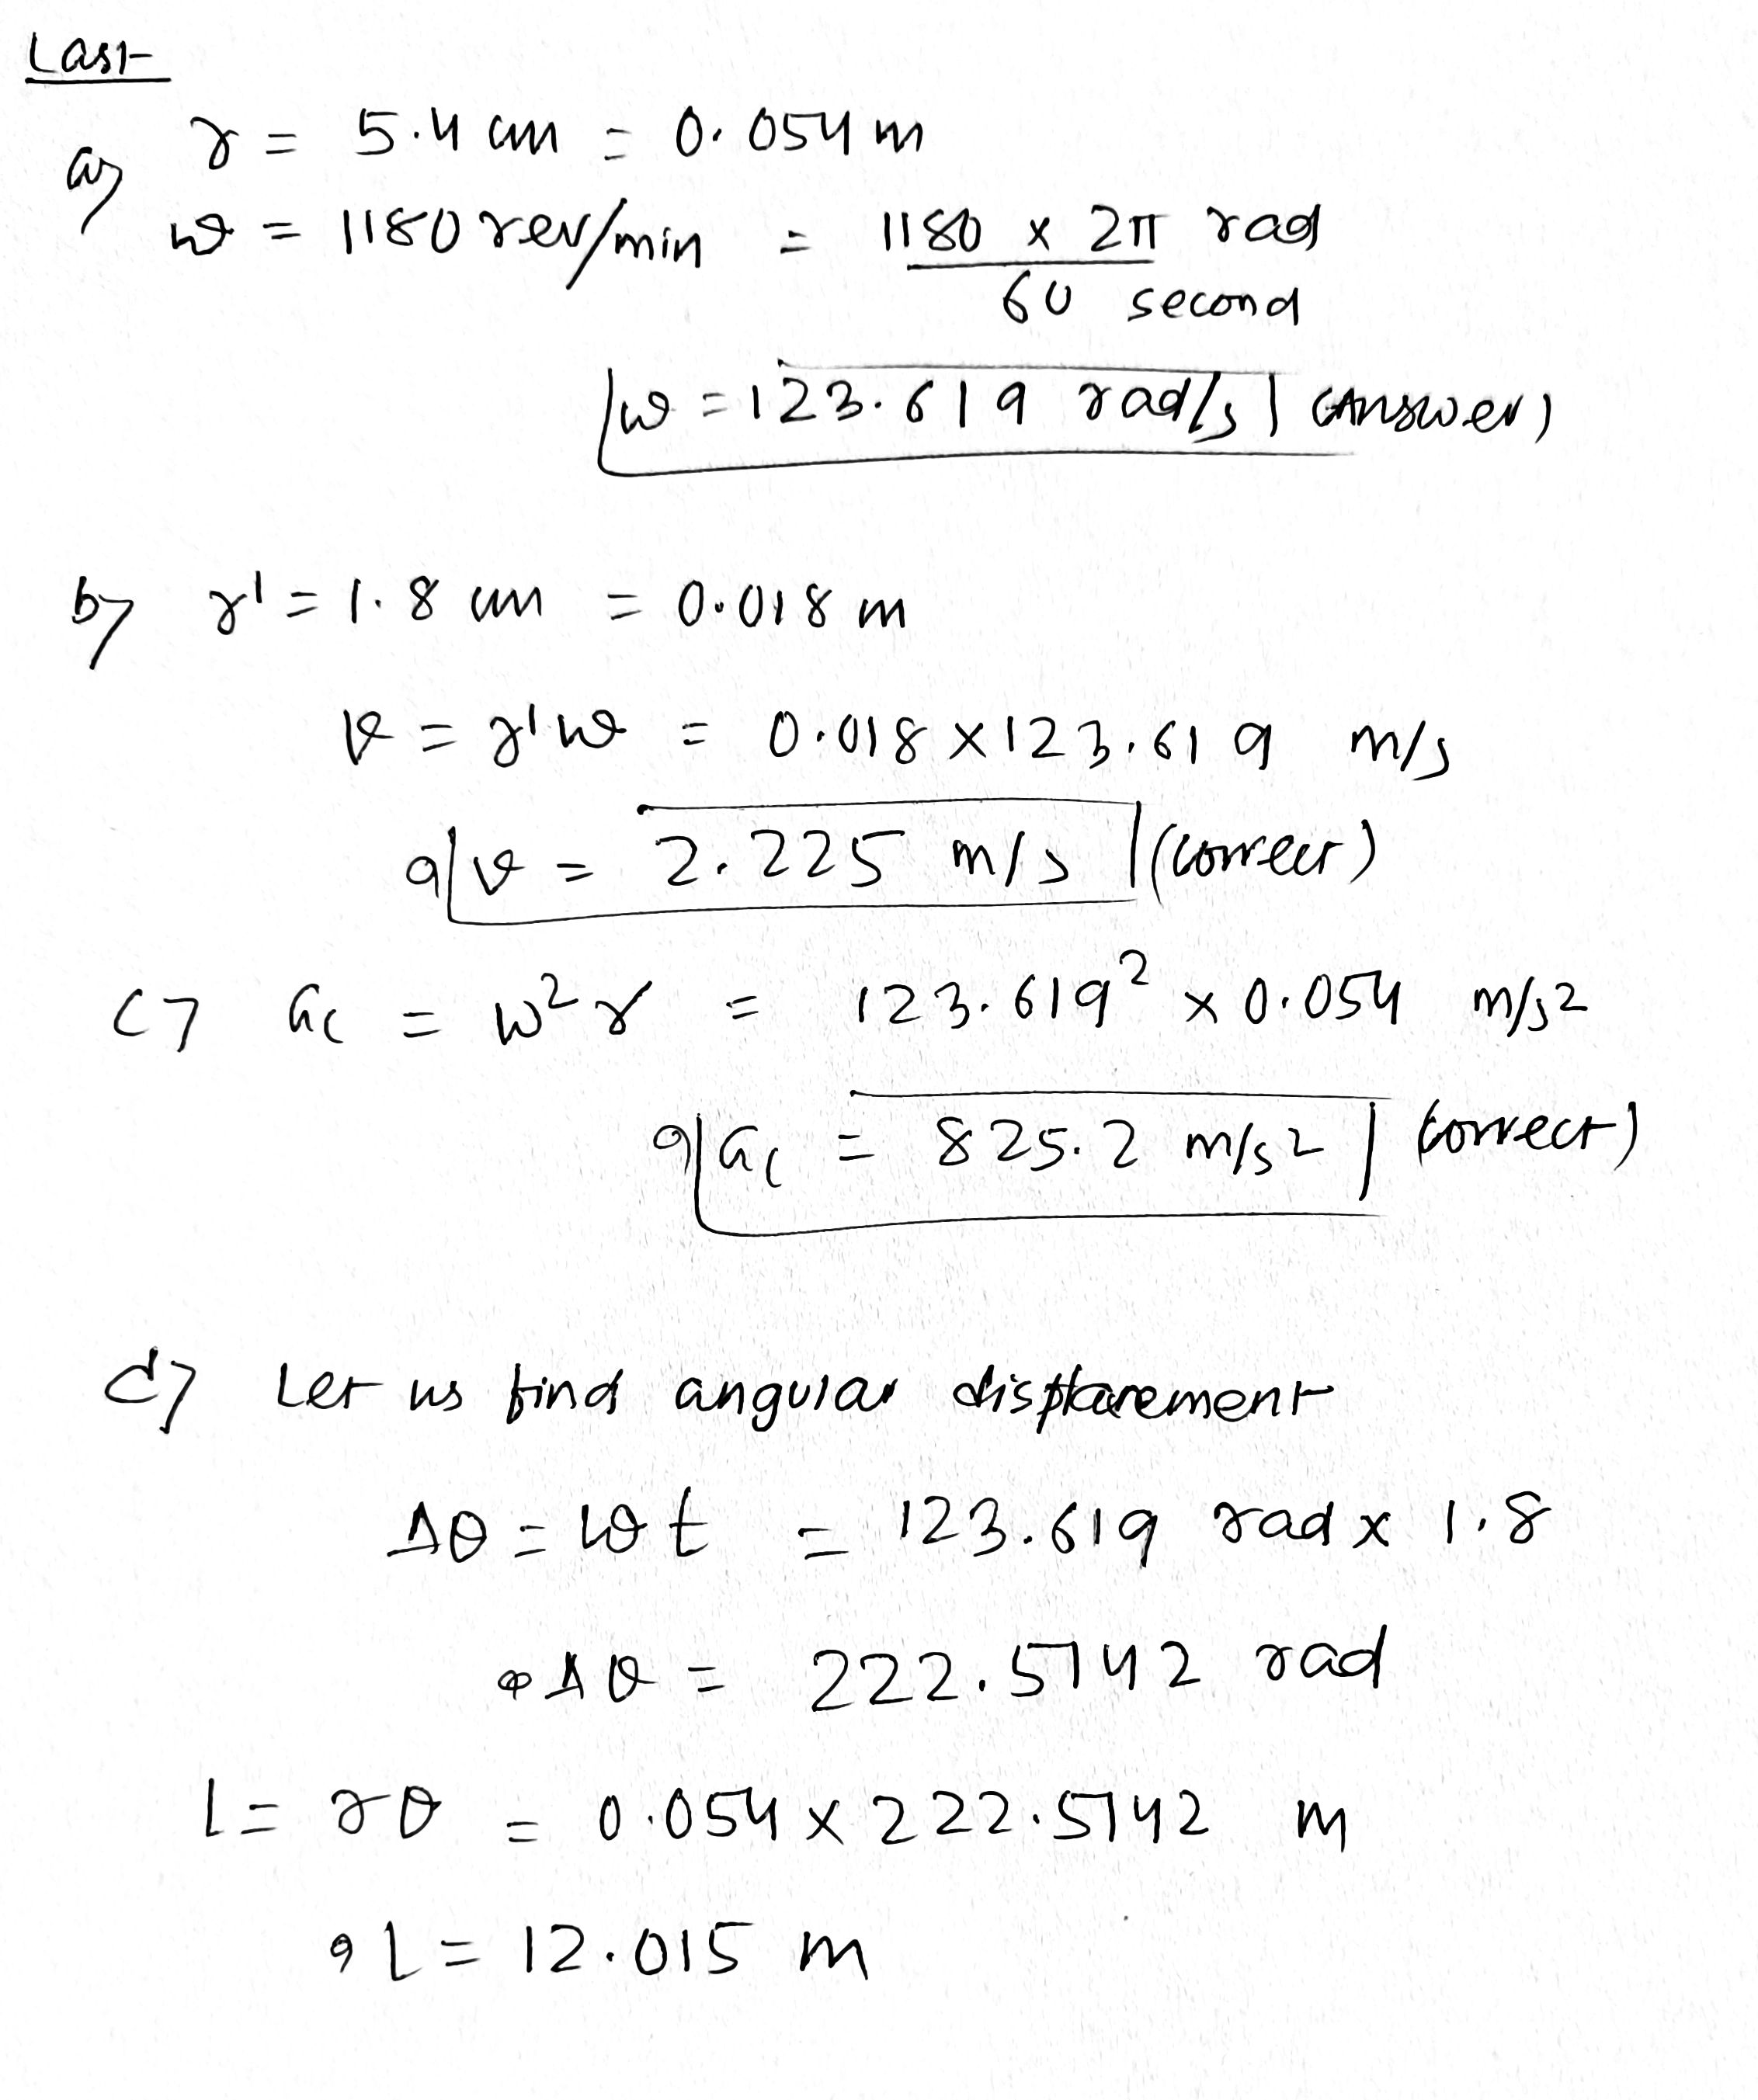 Last
a) r = 5.4 cm = 0.054 m
ω = 1180 rev/min = 1180 × 2π rad
60 second
ω = 123.619 rad/s (Answer)
b) r' = 1.8 cm = 0.018 m
v = r'ω = 0.018 × 123.619 m/s
v = 2.225 m/s (correct)
c) ac = ω²r = 123.619² × 0.054 m/s2
ac = 825.2 m/s2 (correct)
d) Let us find angular displacement
Δθ = ωt = 123.619 rad × 1.8
Δθ = 222.5142 rad
l = rθ = 0.054 × 222.5142 m
l = 12.015 m